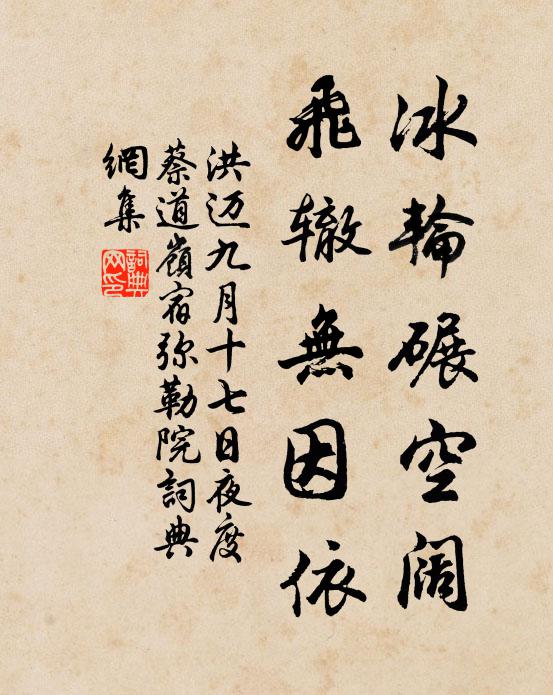 冰輪碾空阔
飛辙無因依
洪迈九月十七日夜度
蔡道嶺宿弥勒院詞典
網集
詞典网印